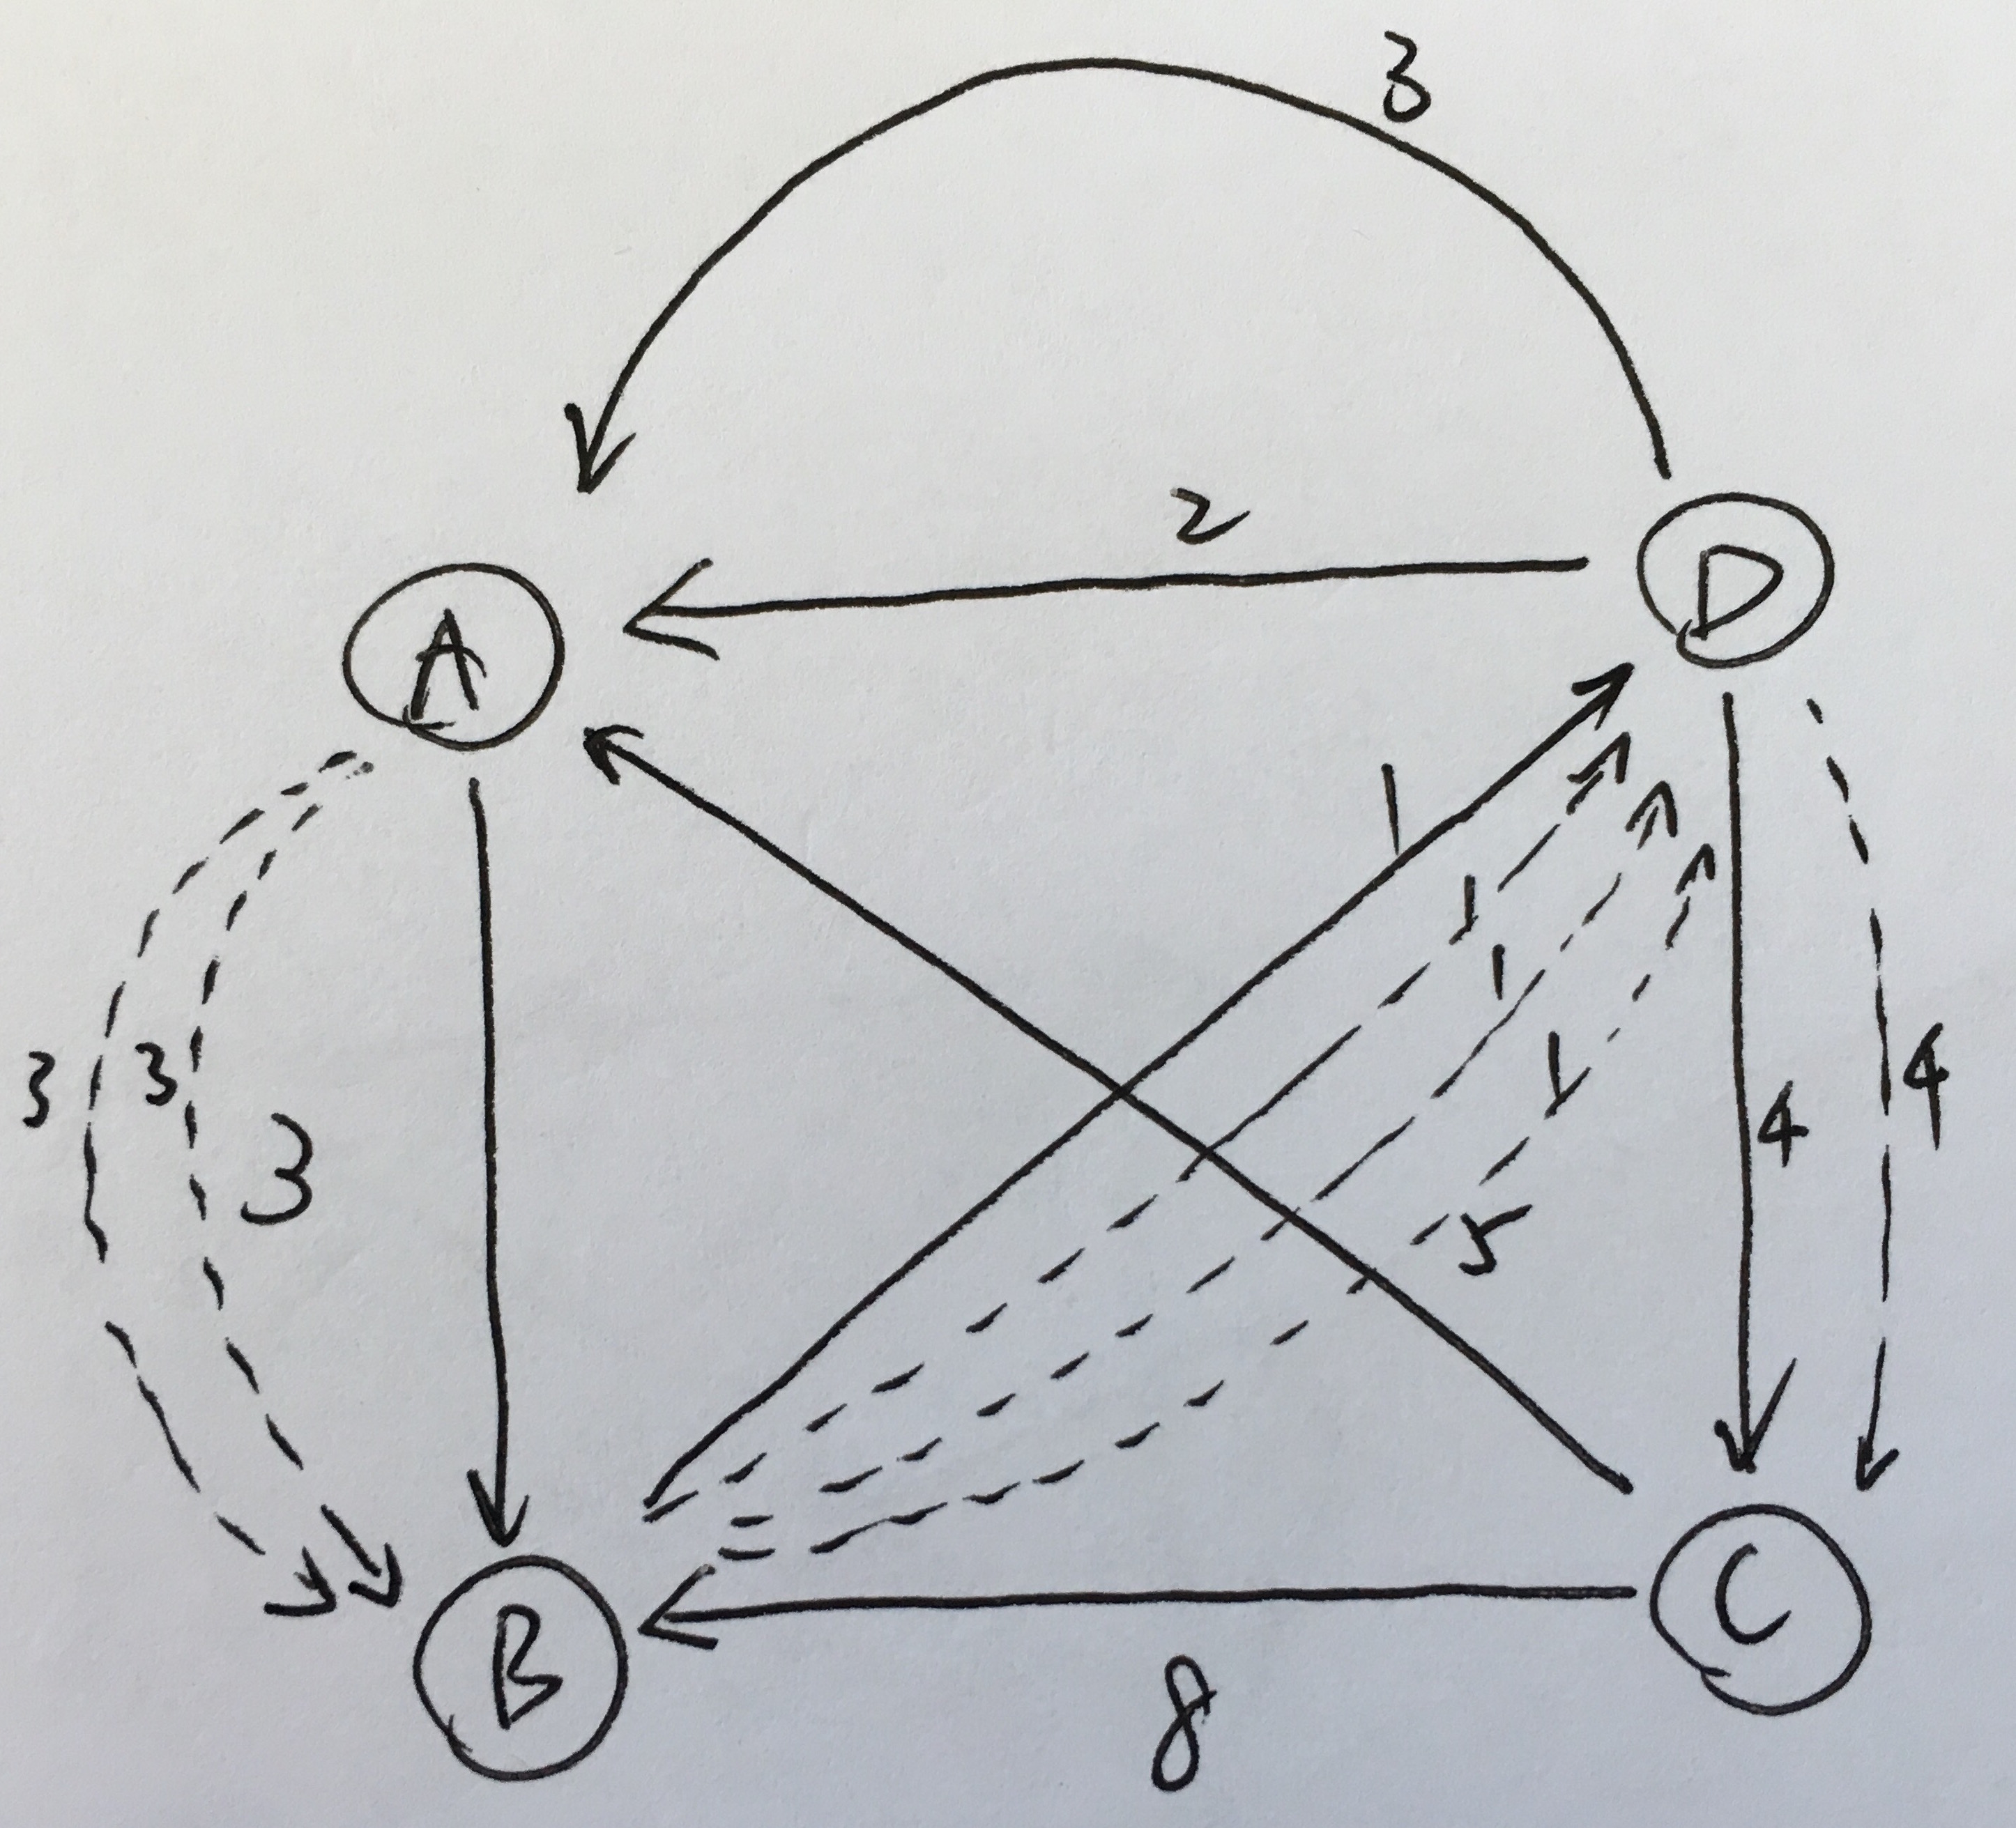 3
2
D
A
1
1
1
3
3
1
4
4
3
5
B
C
8